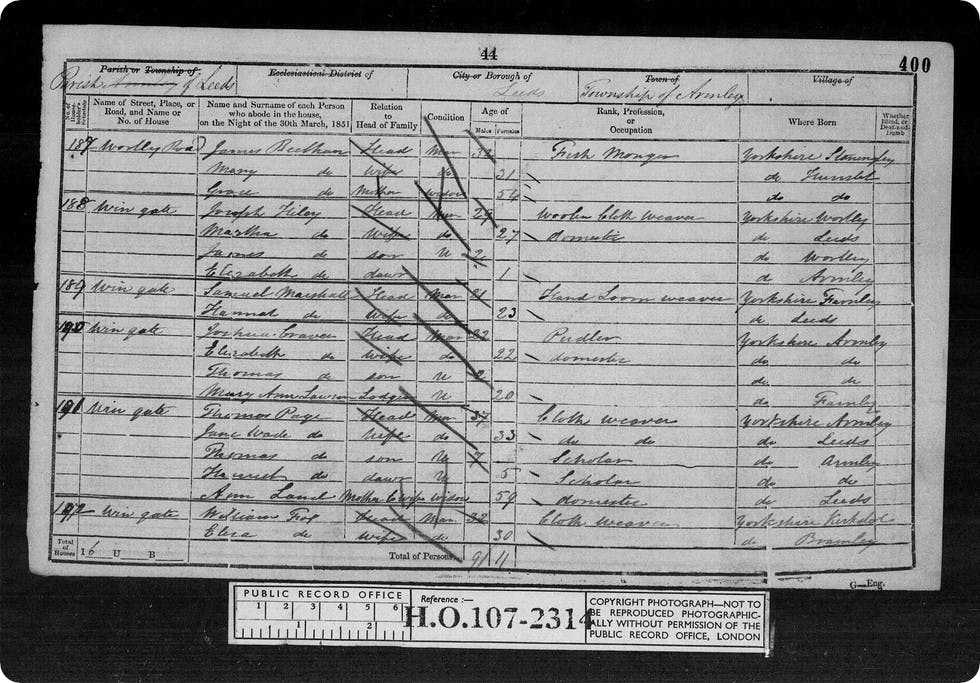 44
400
Parish or Township of
Ecclesiastical District of
City or Borough of
Town of
Village of
Parish of Leeds
Leeds
Township of Armley
No. of House-holder's Schedule
Name of Street, Place, or Road, and Name or No. of House
Name and Surname of each Person who abode in the house, on the Night of the 30th March, 1851
Relation to Head of Family
Condition
Age of
Males Females
Rank, Profession, or Occupation
Where Born
Whether Blind, or Deaf-and-Dumb
187 Wortley Road James Head Mar 32 Fish Monger Yorkshire
Mary do wife do 31 do Hunslet
Grace do Mother widow 54 do do
188 Win gate Joseph Head Mar 29 Woolen Cloth Weaver Yorkshire Wortley
Martha do Wife do 27 domestic do Leeds
James do son U do Wortley
Elizabeth do dawr 1 do Armley
189 Win gate Samuel Marshall Head Mar 21 Hand Loom weaver Yorkshire Farnley
Hannah do Wife do 23 do Leeds
190 Win gate Joshua Craven Head Mar 22 Pudler Yorkshire Armley
Elizabeth do wife do 22 domestic do do
Thomas do son U do do
Mary Ann Lawson Lodger U 20 do Farnley
191 Win gate Thomas Page Head Mar 37 Cloth weaver Yorkshire Armley
Jane Wade do wife do 33 do do do Leeds
Thomas do son U 7 Scholar do Armley
Harriet do dawr U 5 Scholar do do
Ann Land Mother C wife widow 59 domestic do Leeds
192 Win gate William Head Mar 32 Cloth weaver Yorkshire
Eliza do wife do 30 do Bramley
Total of Houses 16 U B
Total of Persons 9 11
G—Eng.
PUBLIC RECORD OFFICE
1 2 3 4 5 6
1 2
Reference :—
H.O.107-2314
COPYRIGHT PHOTOGRAPH—NOT TO
BE REPRODUCED PHOTOGRAPHIC-
ALLY WITHOUT PERMISSION OF THE
PUBLIC RECORD OFFICE, LONDON